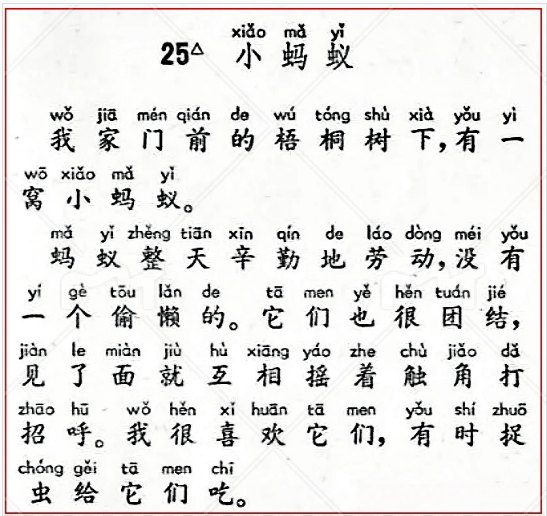 xiǎo mǎ yǐ
25△ 小蚂蚁
wǒ jiā mén qián de wú tóng shù xià yǒu yì
我家门前的梧桐树下，有一
wō xiǎo mǎ yǐ
窝小蚂蚁。
mǎ yǐ zhěng tiān xīn qín de láo dòng méi yǒu
蚂蚁整天辛勤地劳动，没有
yí gè tōu lǎn de tā men yě hěn tuán jié
一个偷懒的。它们也很团结，
jiàn le miàn jiù hù xiāng yáo zhe chù jiǎo dǎ
见了面就互相摇着触角打
zhāo hū wǒ hěn xǐ huān tā men yǒu shí zhuō
招呼。我很喜欢它们，有时捉
chóng gěi tā men chī
虫给它们吃。